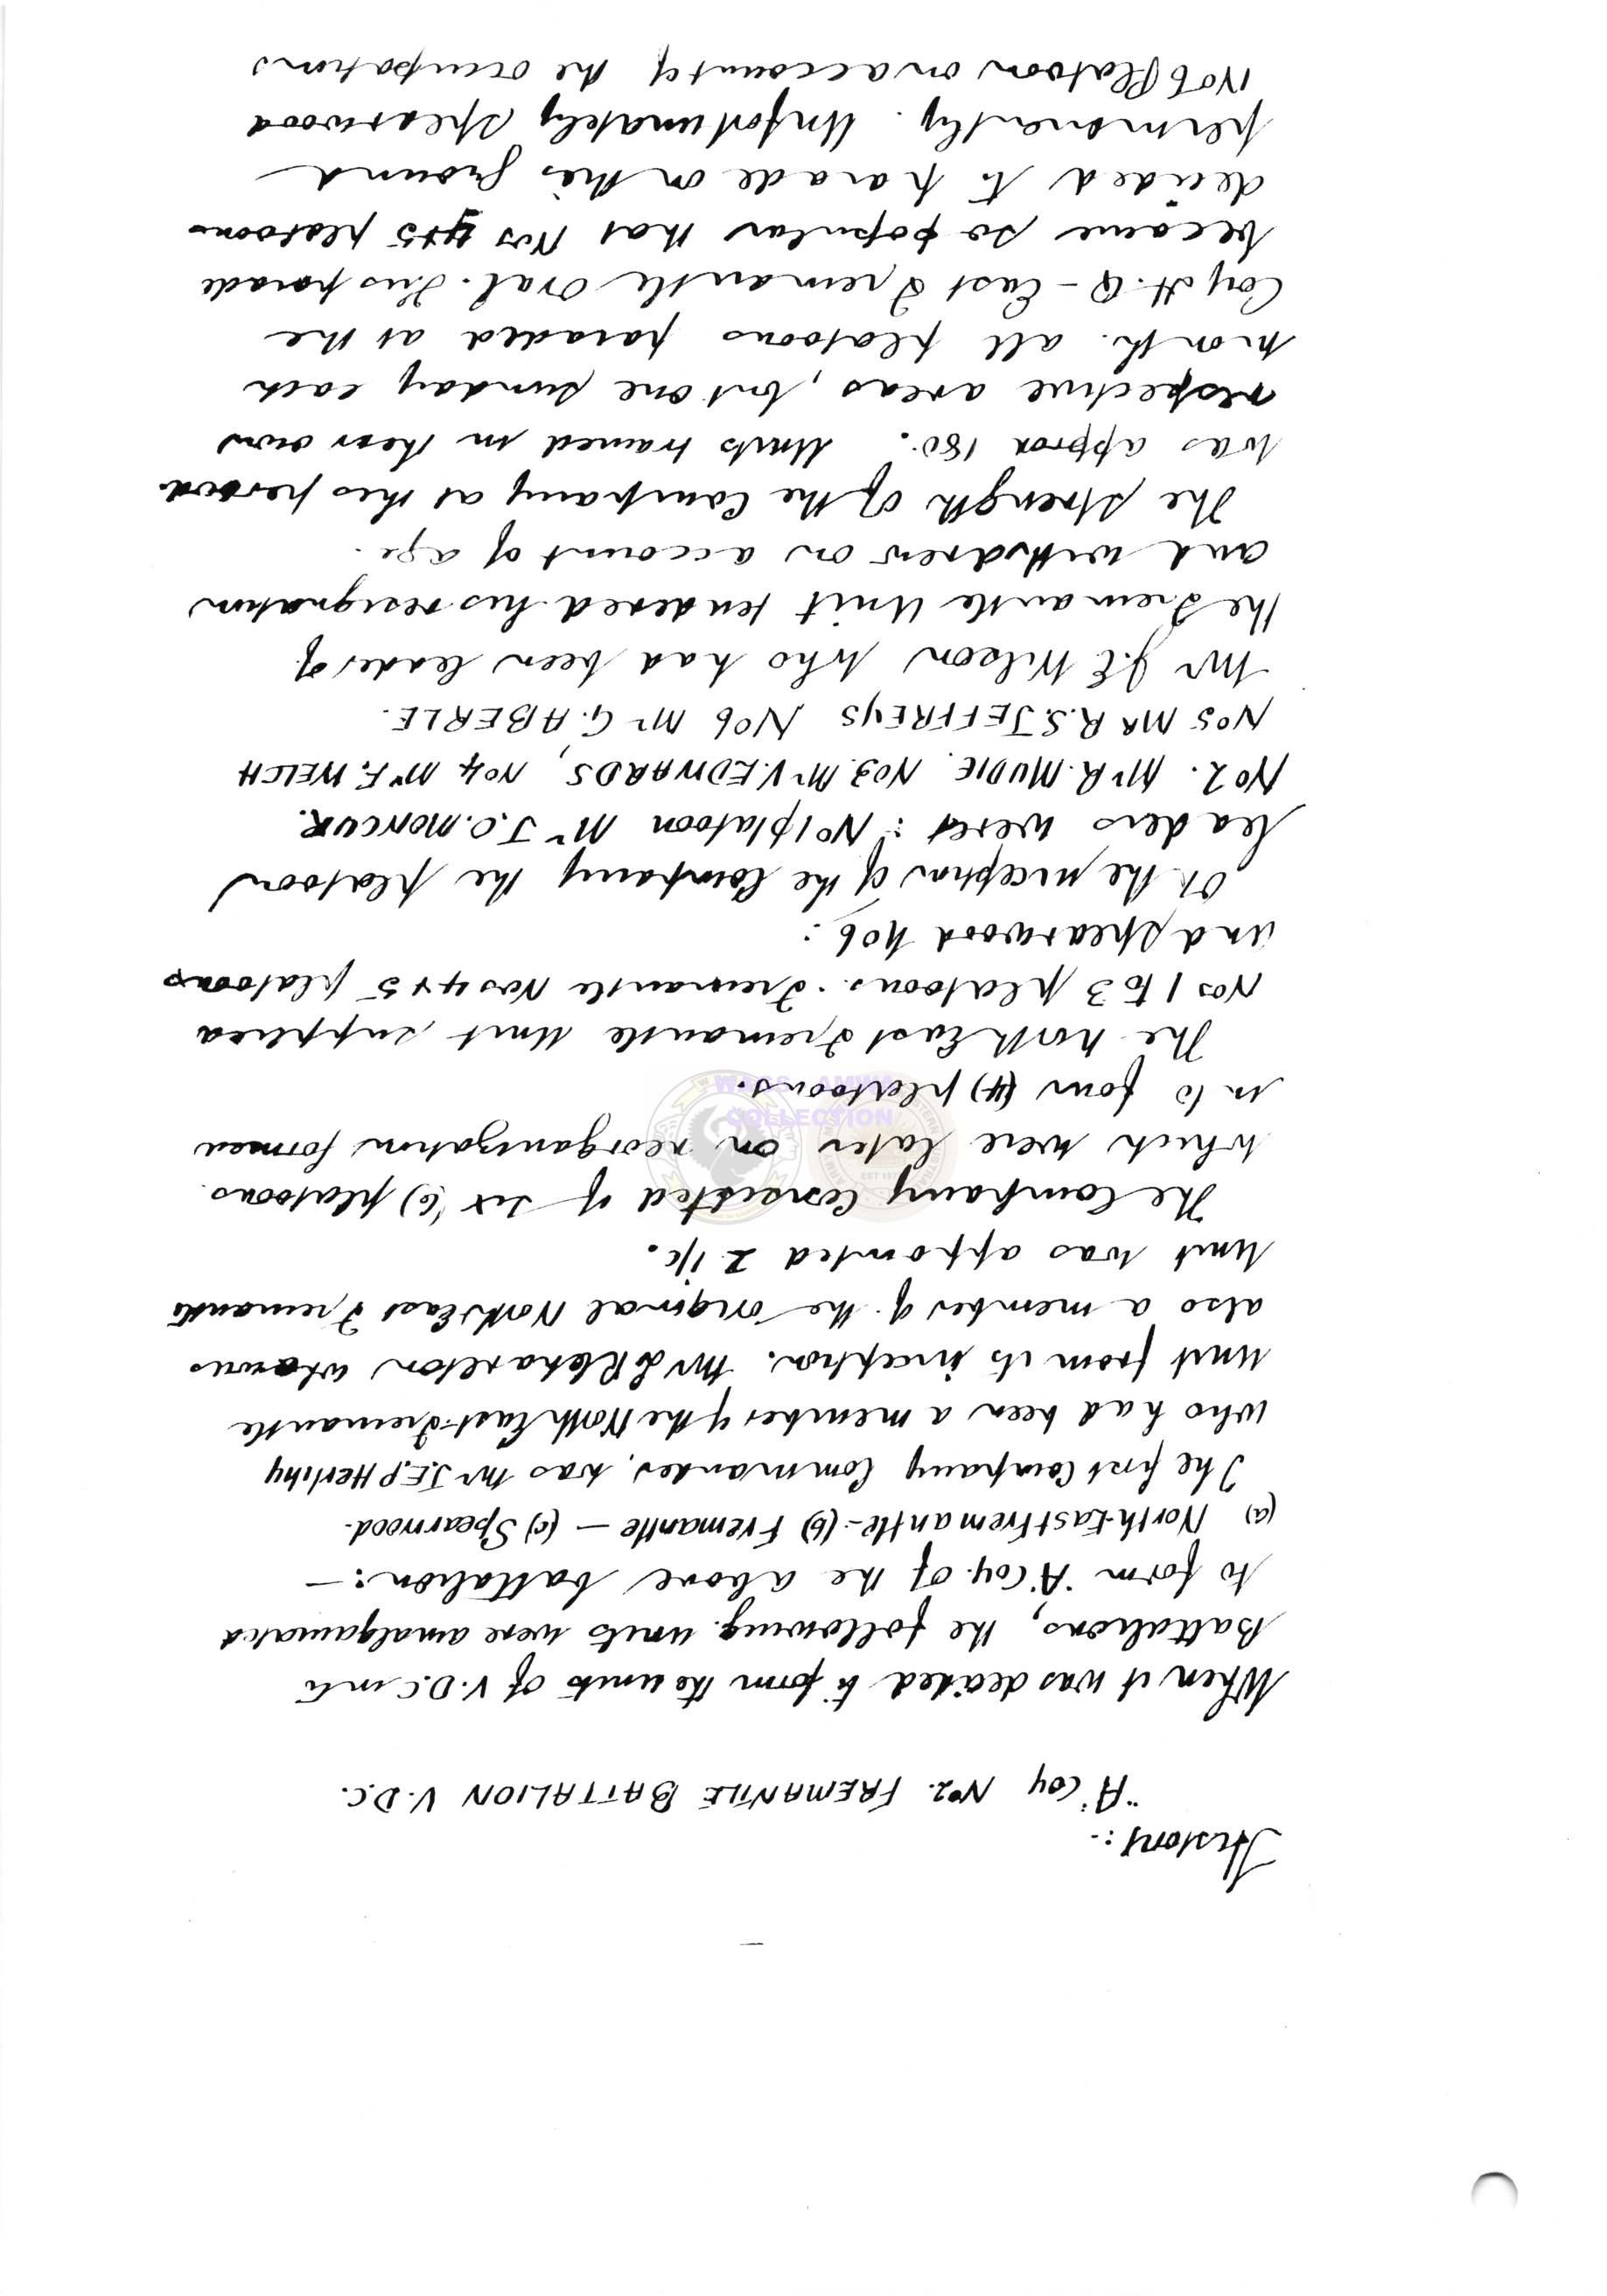 History:-
"A" Coy No2. FREMANTLE BATTALION V.D.C.
When it was decided to form the units of V.D.C into
Battalions, the following units were amalgamated
to form "A" Coy. of the above battalion:—
(a) North-East Fremantle - (b) Fremantle — (c) Spearwood.
The first Company Commander, was Mr J.E.P Herlihy
who had been a member of the North East Fremantle
Unit from its inception. Mr L R Charelton who was
also a member of the original North East Fremantle
Unit was appointed 2 i/c.
The Company Consisted of six (6) platoons.
which were later on reorganization formed
in to four (4) platoons.
The North East Fremantle Unit supplied
Nos 1 to 3 platoons. Fremantle Nos 4 & 5 platoons
and Spearwood No 6:
At the inception of the Company the platoon
leaders were: No 1 platoon Mr J.O. MONCUR.
No 2. Mr R. MUDIE. No3. Mr V. EDWARDS, No 4 Mr F. WELCH
No 5 MR R.S. JEFFREYS No 6 Mr G. ABERLE.
Mr J.E Wilson who had been leader of
the Fremantle Unit tendered his resignation
and withdrew on account of age.
The strength of the Company at this period
was approx 180. Units trained in their own
respective areas, but one Sunday each
month. all platoons paraded at the
Coy H.Q - East Fremantle Oval. This parade
became so popular that Nos 4 & 5 platoons
decided to parade on this ground
permanently. Unfortunately Spearwood
No 6 Platoon on account of the occupations
WAGS AMWA
COLLECTION